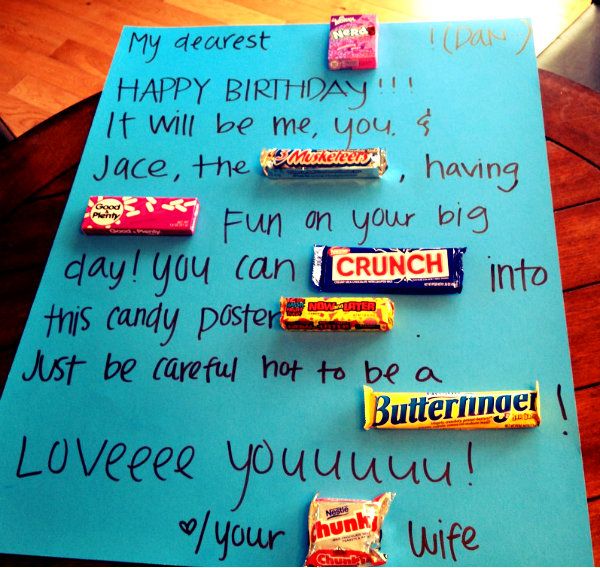 My dearest Nerds ! (DAN)
HAPPY BIRTHDAY!!!
It will be me, you, &
Jace, the 3 Musketeers, having
Good & Plenty Good & Plenty Fun on your big
day! you can Nestle CRUNCH into
this candy poster NOW and LATER .
Just be careful not to be a
Butterfinger !
LOVeeee YOUUUUUU!
♡/your Nestlé Chunky Chunky wife